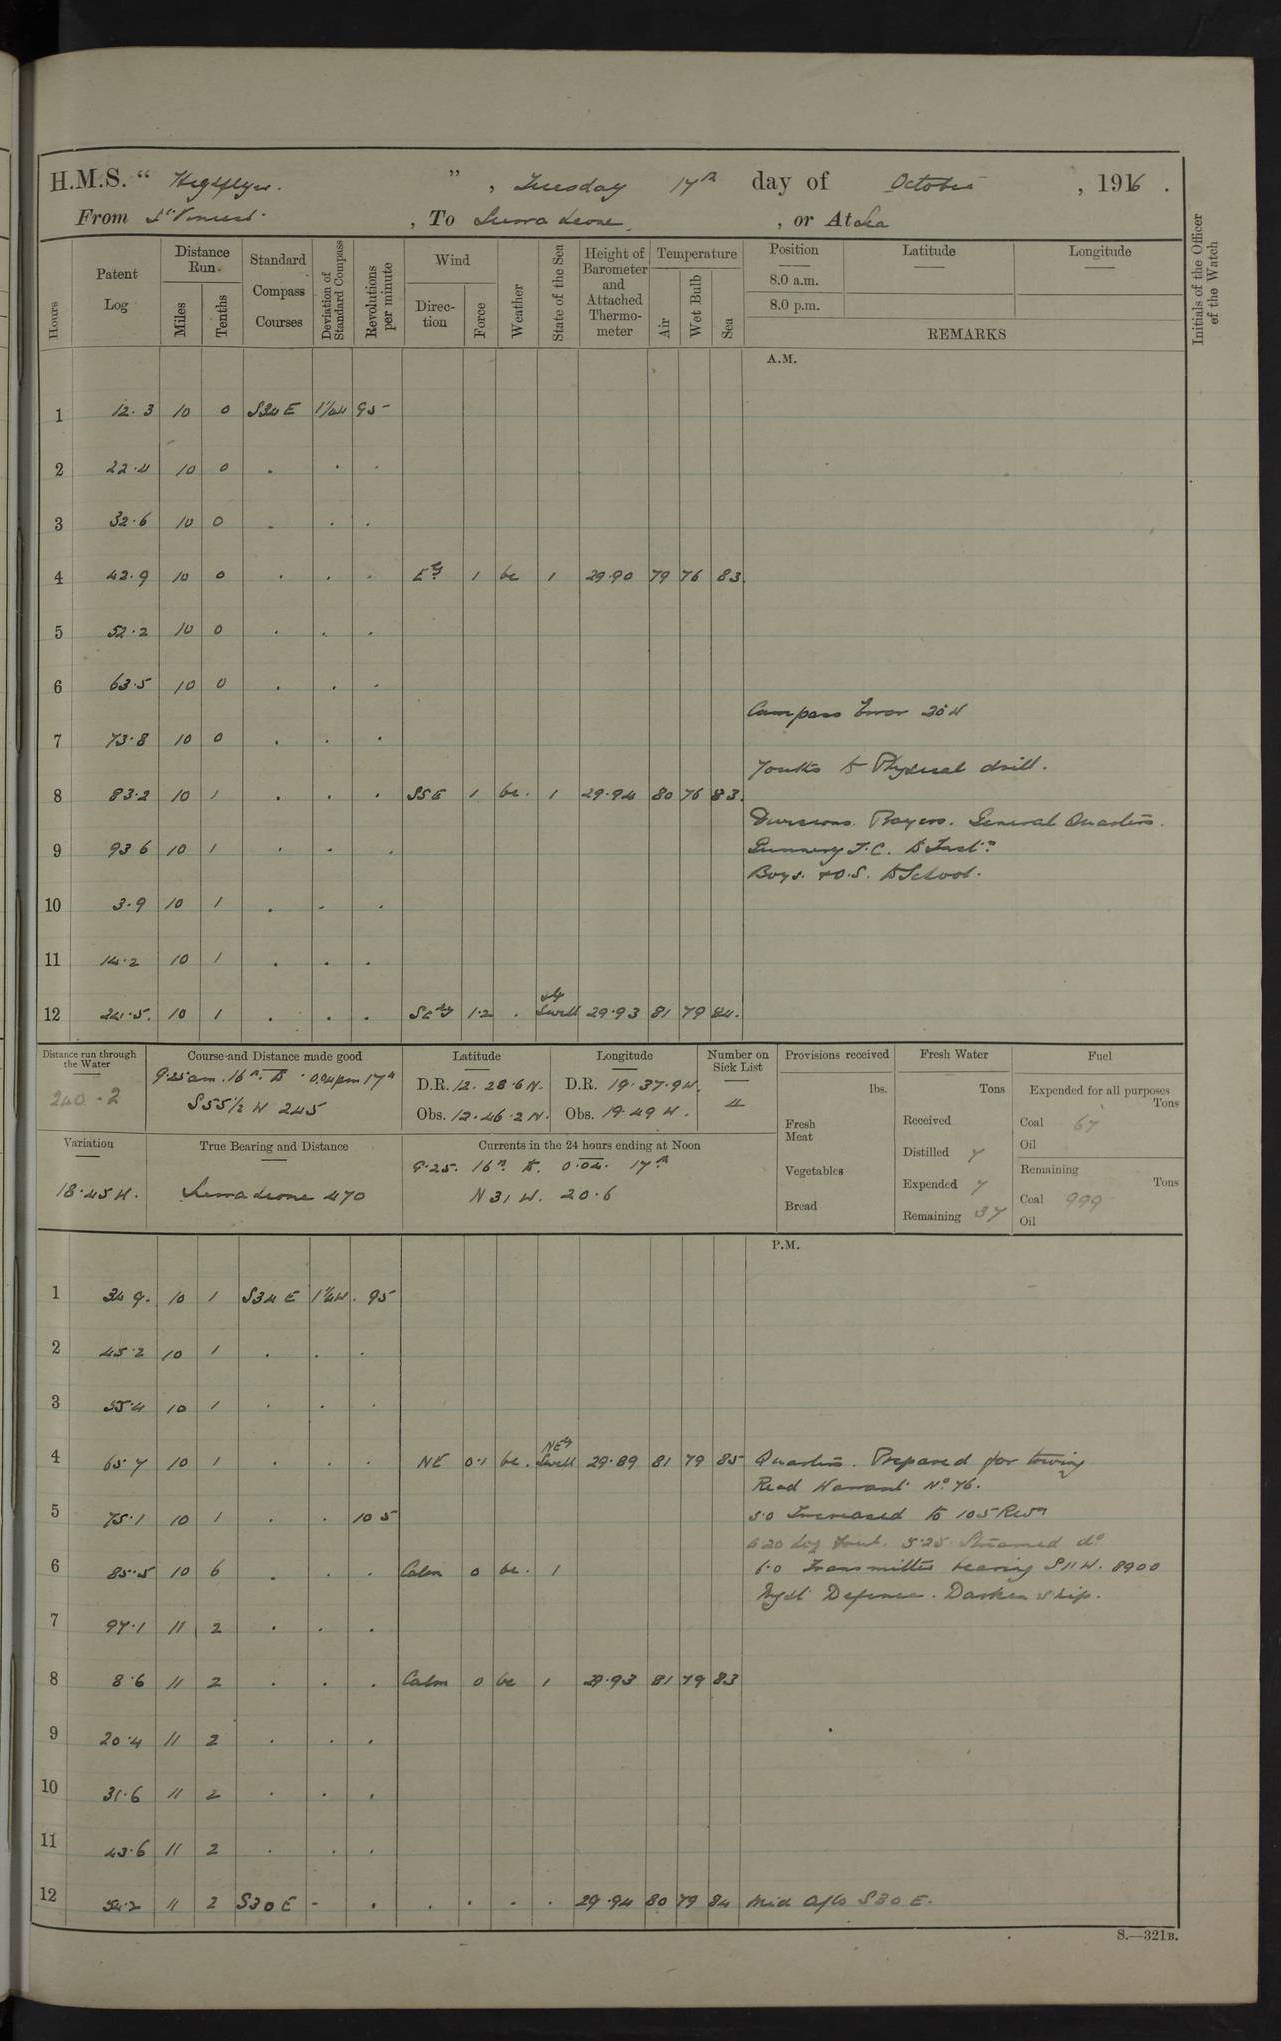 H.M.S. " Highflyer. " , Tuesday 17th day of October , 1916 .
From St Vincent. , To Sierra Leone. , or At Sea
Hours
Patent Log
Distance Run.
Miles
Tenths
Standard Compass Courses
Deviation of Standard Compass
Revolutions per minute
Wind
Direction
Force
Weather
State of the Sea
Height of Barometer and Attached Thermometer
Temperature
Air
Wet Bulb
Sea
Position
8.0 a.m.
8.0 p.m.
Latitude
Longitude
REMARKS
Initials of the Officer of the Watch
A.M.
1 12.3 10 0 S34E 1¼W 95
2 22.4 10 0 . . .
3 32.6 10 0 . . .
4 42.9 10 0 . . . Ely 1 bc 1 29.90 79 76 83.
5 52.2 10 0 . . .
6 63.5 10 0 . . .
Compass Error 20°W
7 73.8 10 0 . . .
Youths to Physical drill.
8 83.2 10 1 . . . SSE 1 bc. 1 29.94 80 76 83.
Divisions. Prayers. General Quarters.
9 93 6 10 1 . . . Gunnery T.C. to Instn
Boys. & O.S. to School.
10 3.9 10 1 . . .
11 14.2 10 1 . . .
12 24.5. 10 1 . . . SEly 1.2 . Swell 29.93 81 79 84.
Distance run through the Water
240.2
Course and Distance made good
9.25am. 16th to 0.04pm 17th
S55½W 245
Latitude
D.R. 12. 28.6N.
Obs. 12.46.2N.
Longitude
D.R. 19.37.9W.
Obs. 19.49W.
Number on Sick List
4
Provisions received
lbs.
Fresh Meat
Vegetables
Bread
Fresh Water
Tons
Received
Distilled 7
Expended 7
Remaining 37
Fuel
Expended for all purposes
Tons
Coal 67
Oil
Remaining
Tons
Coal 999
Oil
Variation
18.45W.
True Bearing and Distance
Sierra Leone 470
Currents in the 24 hours ending at Noon
9.25. 16th to 0.04. 17th
N31W. 20.6
P.M.
1 34 9. 10 1 S34E 1¼W. 95
2 45.2 10 1 . . .
3 55.4 10 1 . . .
4 65.7 10 1 . . . NE 0.1 bc. NEly Swell 29.89 81 79 85 Quarters. Prepared for towing
Read Warrant No 76.
5 75.1 10 1 . . 105 5.0 Increased to 105 Revs
log foul. 5.25. Streamed do
6 85.5 10 6 . . . Calm 0 bc. 1 6.0 Transmitter bearing S11W. 8900
Night Defence. Darken ship.
7 97.1 11 2 . . .
8 8.6 11 2 . . . Calm 0 bc 1 29.93 81 79 83
9 20.4 11 2 . . .
10 31.6 11 2 . . .
11 43.6 11 2 . . .
12 54.2 11 2 S30E - . . . . . 29.94 80 79 84 Mid a/c S30E.
S.—321B.